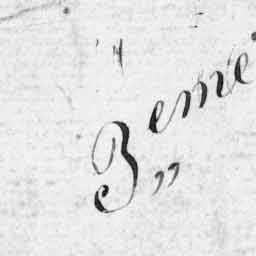 3,, eme